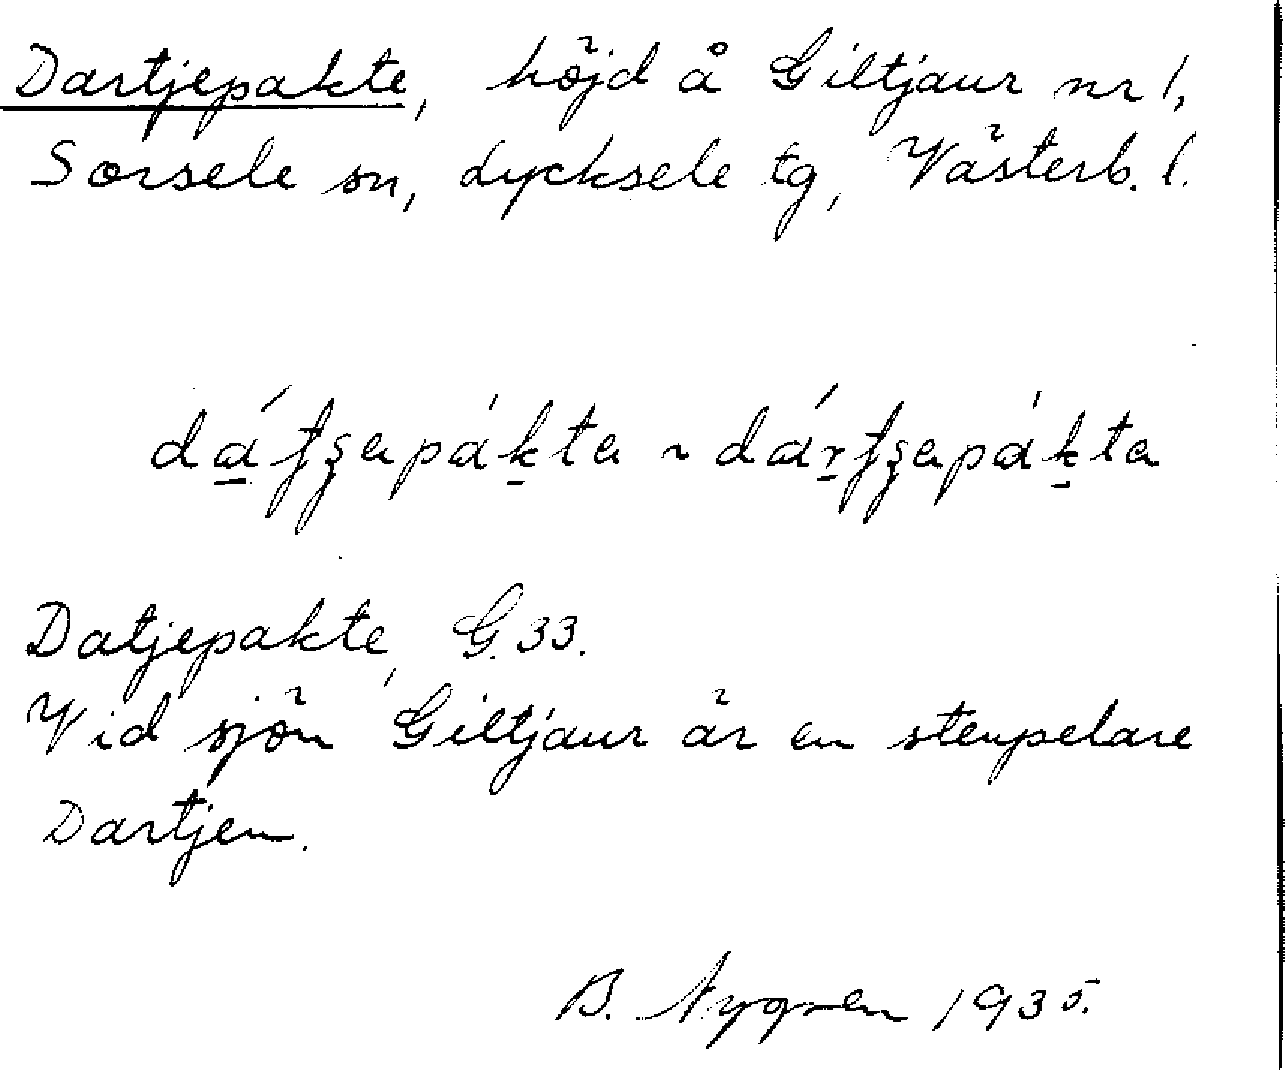 Dartjepakte, höjd å Giltjaur nr 1,
Sorsele sn, Lycksele tg, Västerb. l.
Datjepakte, G. 33.
Vid sjön Giltjaur är en stenpelare
Dartjen.
B. Nygren 1935.